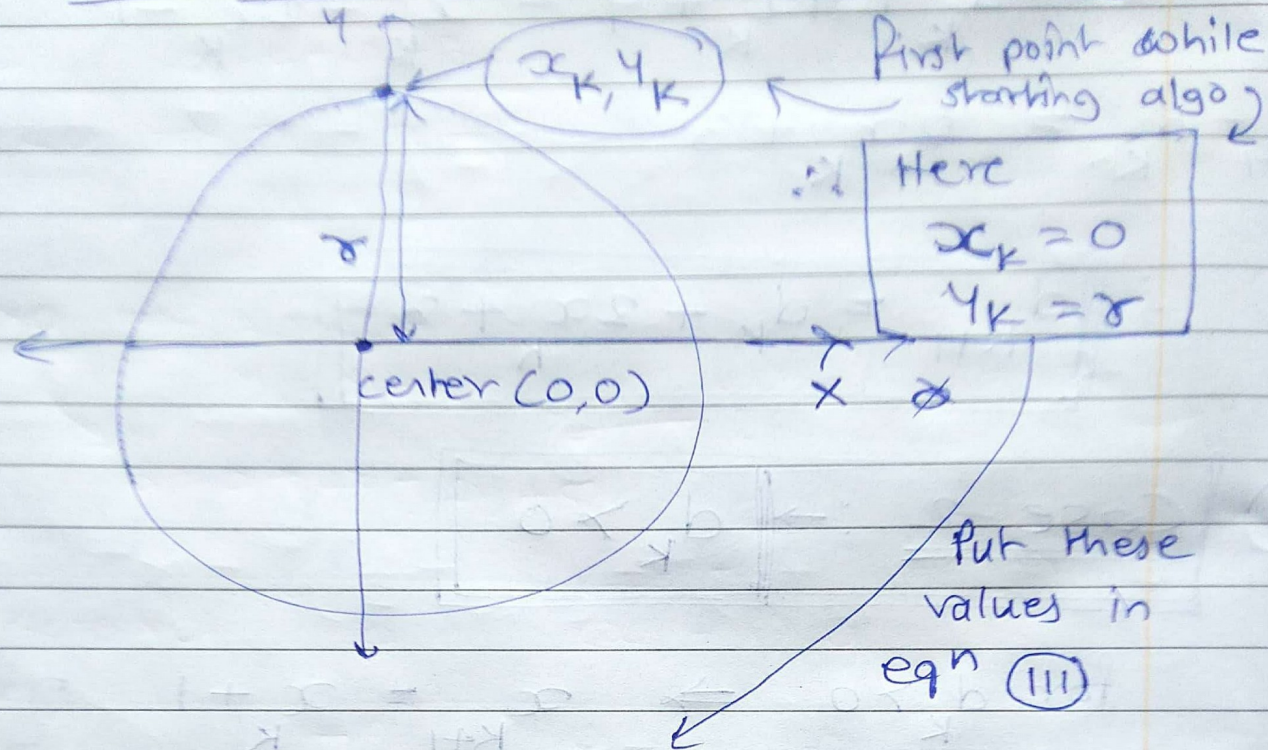 y
x_k, y_k
First point while
starting algo
∴ Here
x_k = 0
y_k = r
r
center (0,0)
X
Put these
values in
eqn (III)